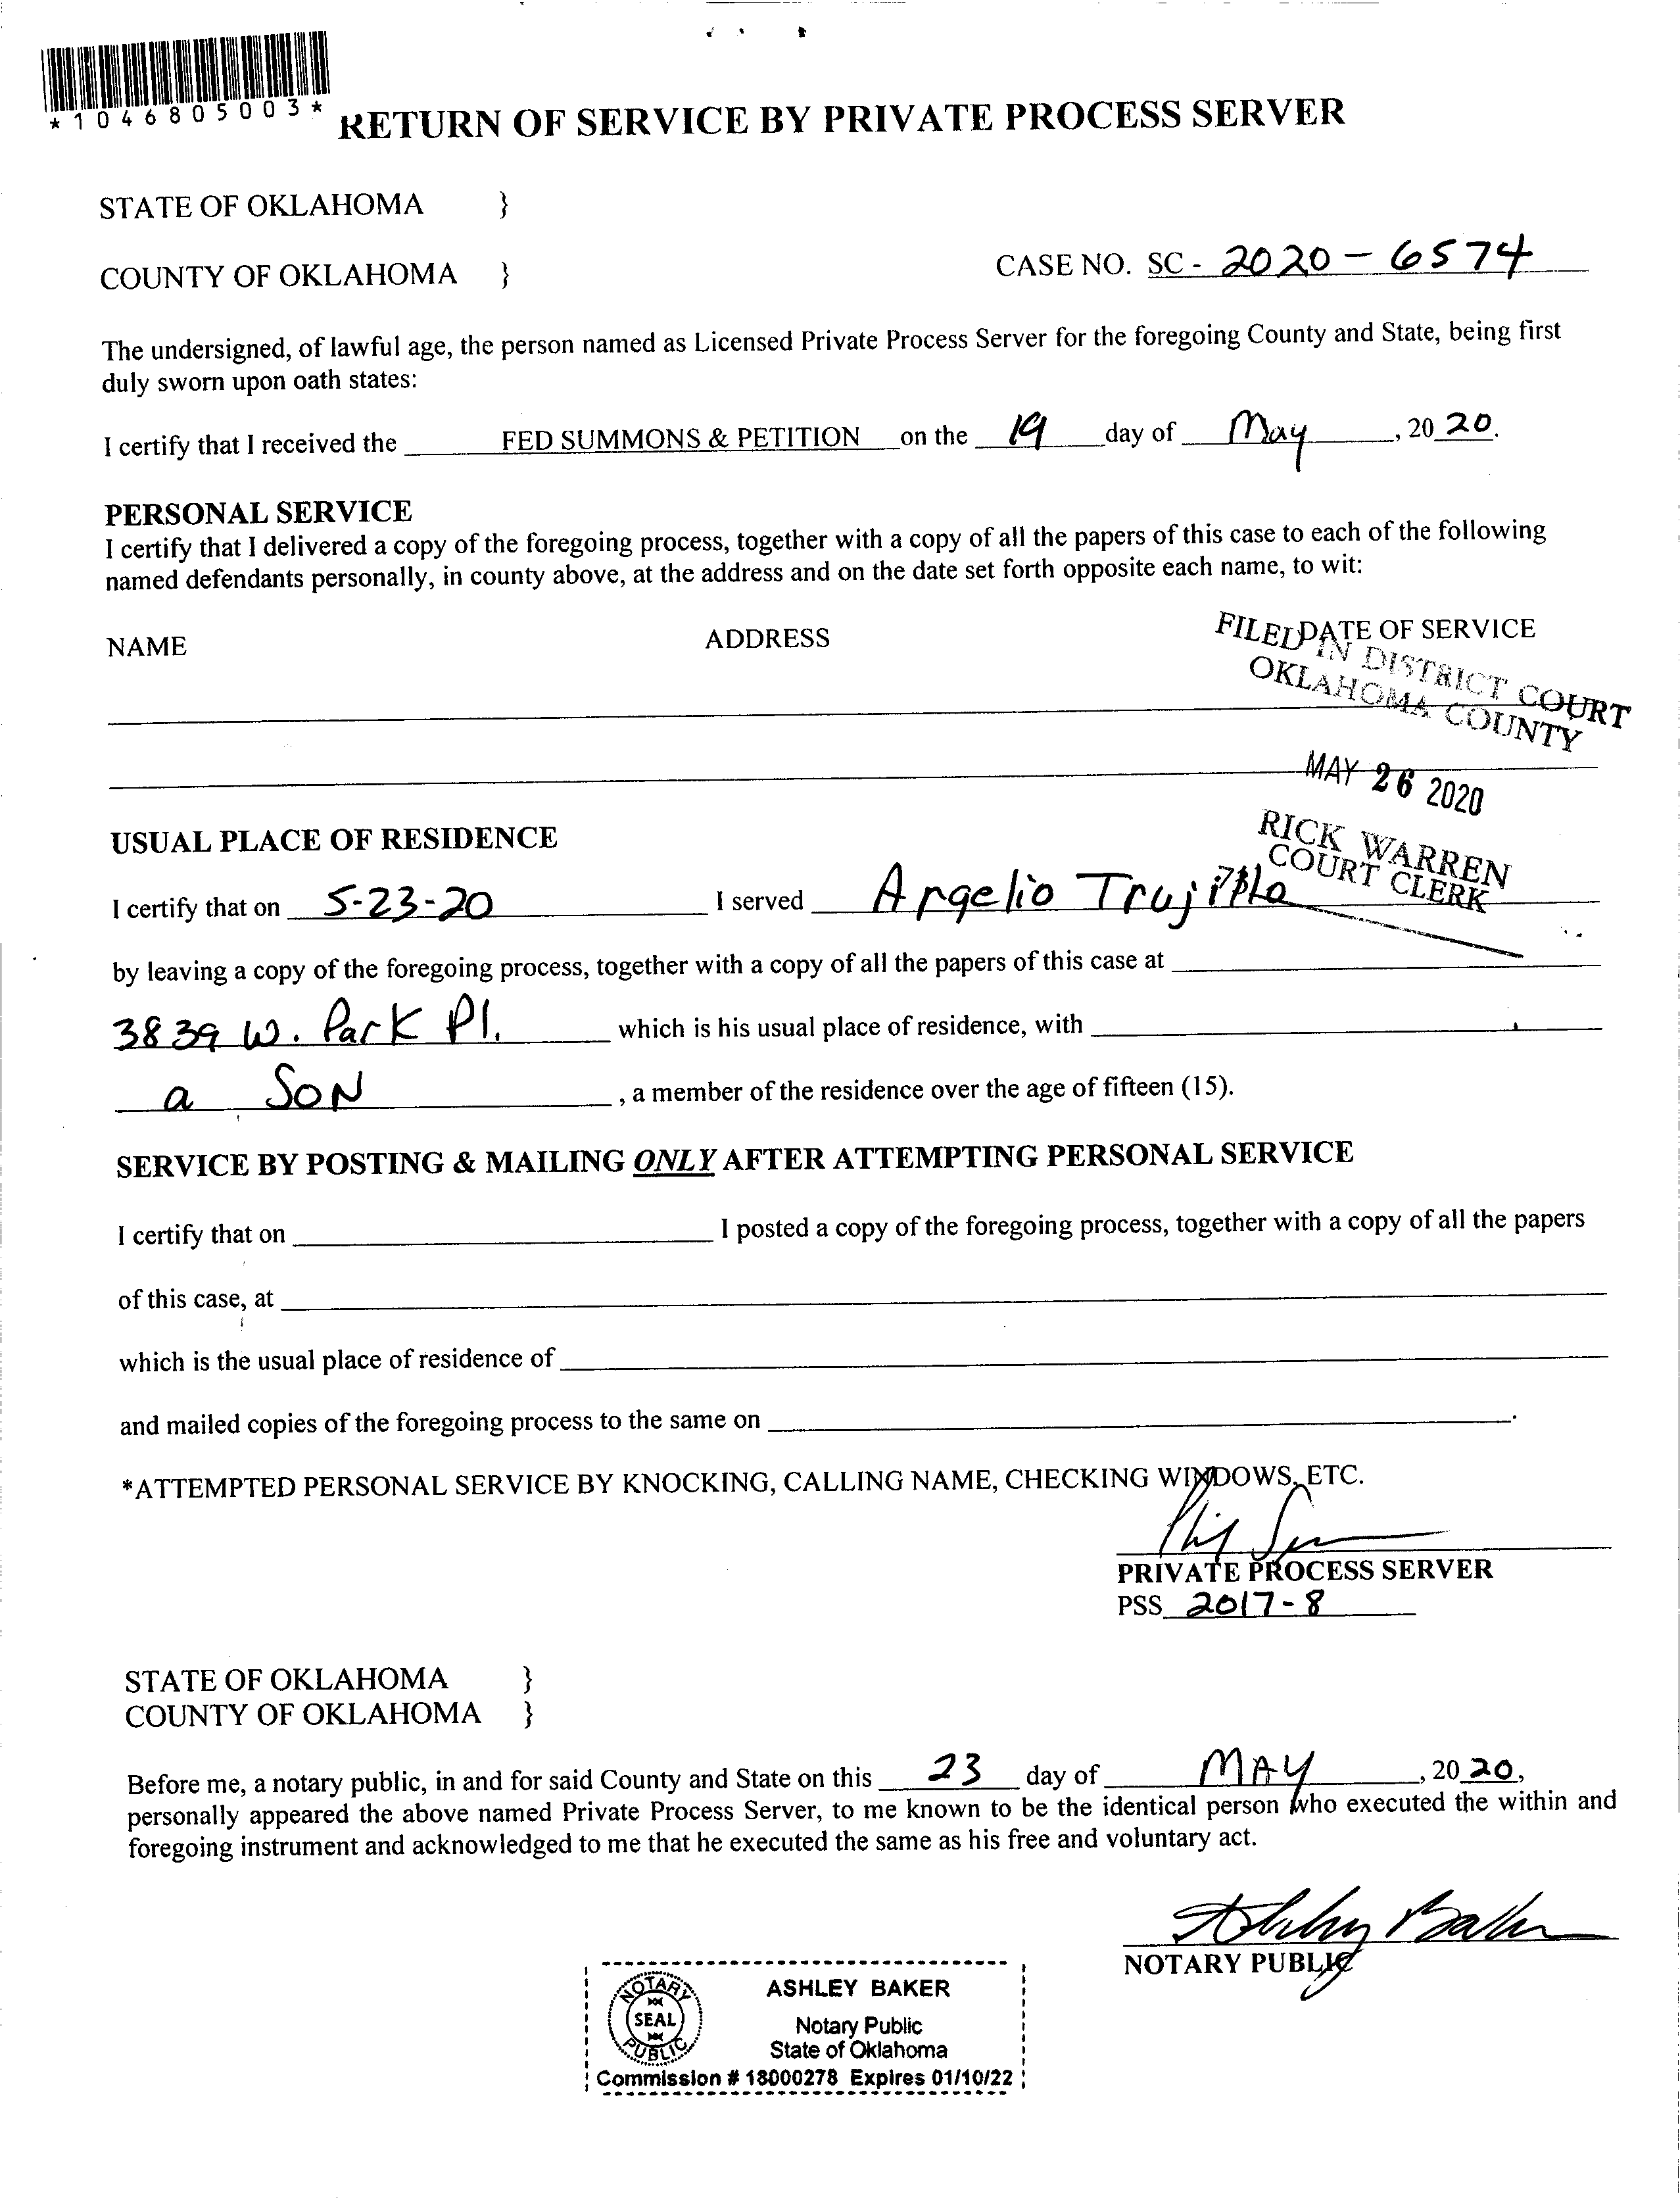 *1046805003*
RETURN OF SERVICE BY PRIVATE PROCESS SERVER
STATE OF OKLAHOMA }
COUNTY OF OKLAHOMA } CASE NO. SC - 2020 - 6574
The undersigned, of lawful age, the person named as Licensed Private Process Server for the foregoing County and State, being first
duly sworn upon oath states:
I certify that I received the FED SUMMONS & PETITION on the 19 day of May, 20 20.
PERSONAL SERVICE
I certify that I delivered a copy of the foregoing process, together with a copy of all the papers of this case to each of the following
named defendants personally, in county above, at the address and on the date set forth opposite each name, to wit:
NAME ADDRESS DATE OF SERVICE
FILED IN DISTRICT COURT
OKLAHOMA COUNTY
MAY 26 2020
RICK WARREN
COURT CLERK
USUAL PLACE OF RESIDENCE
I certify that on 5-23-20 I served Argelio Trujillo
by leaving a copy of the foregoing process, together with a copy of all the papers of this case at
3839 W. Park Pl. which is his usual place of residence, with
a SON, a member of the residence over the age of fifteen (15).
SERVICE BY POSTING & MAILING ONLY AFTER ATTEMPTING PERSONAL SERVICE
I certify that on I posted a copy of the foregoing process, together with a copy of all the papers
of this case, at
which is the usual place of residence of
and mailed copies of the foregoing process to the same on .
*ATTEMPTED PERSONAL SERVICE BY KNOCKING, CALLING NAME, CHECKING WINDOWS, ETC.
PRIVATE PROCESS SERVER
PSS 2017-8
STATE OF OKLAHOMA }
COUNTY OF OKLAHOMA }
Before me, a notary public, in and for said County and State on this 23 day of MAY, 20 20,
personally appeared the above named Private Process Server, to me known to be the identical person who executed the within and
foregoing instrument and acknowledged to me that he executed the same as his free and voluntary act.
Ashley Baker
NOTARY PUBLIC
NOTARY PUBLIC SEAL
ASHLEY BAKER
Notary Public
State of Oklahoma
Commission # 18000278 Expires 01/10/22